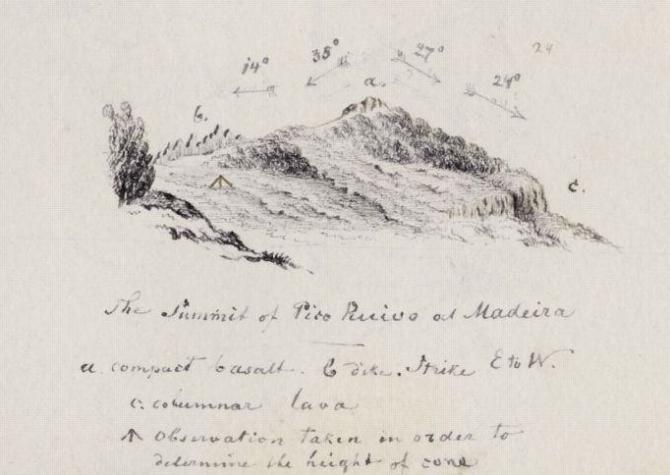 24
14° 35° 27° 24°
a.
b.
c.
The Summit of Pico Ruivo at Madeira
a. compact basalt. b dike. Strike E to W.
c. columnar lava
↑ Observation taken in order to
determine the height of cone